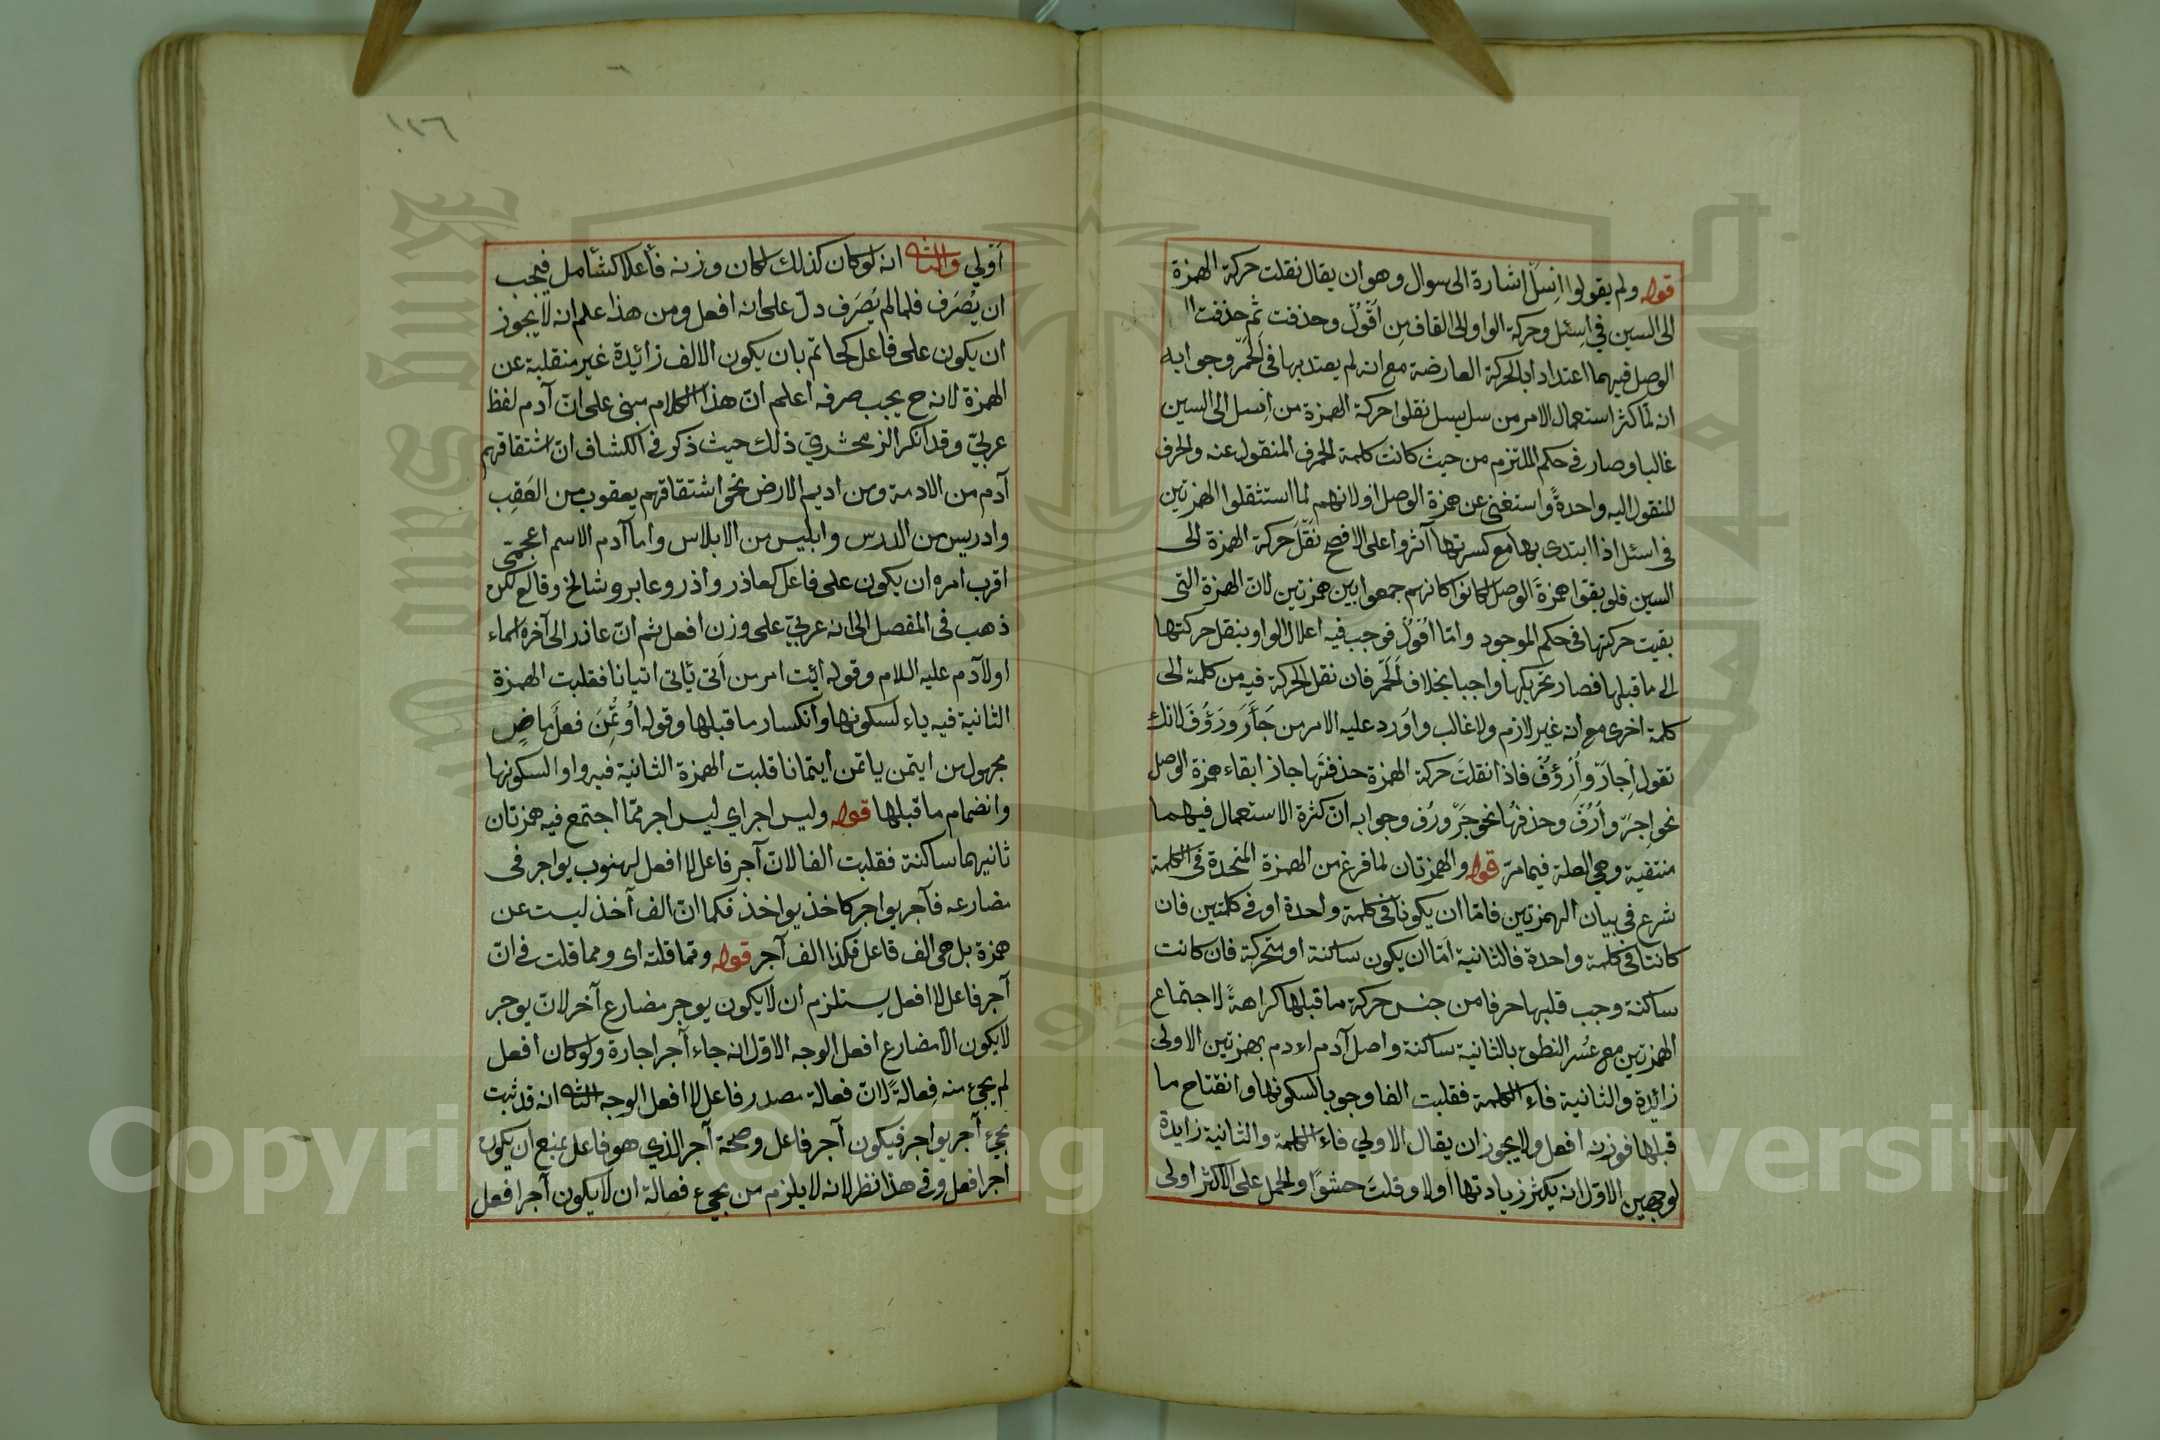 قوله ولم يقولوا اِنسل اشارة الى سوال وهو ان يقال نقلت حركة الهمزة
الى السين في اسئل وحركة الواو الى القاف من اَقوُل وحذفت ثم حذفت ا
الوصل فيهما اعتدادا بالحركة العارضة مع انه لم يعتد بها فى لَحمر وجوابه
انه لما كثر استعمال الامر من سل يسل نقلوا حركة الهمزة من اسل الى السين
غالبا وصار في حكم الملتزم من حيث كانت كلمة الحرف المنقول عنه والحرف
المنقول اليه واحدةً واستغنى عن همزة الوصل او لانهم لما استثقلوا الهمزتين
فى اسئل اذا ابتدى بها مع كسرتها آثروا على الافصح نقلَ حركة الهمزة الى
السين فلو بقوا همزة الوصل لكانوا كانهم جمعوا بين همزتين لان الهمزة التى
بقيت حركتها فى حكم الموجود واما اُقوُل فوجب فيه اعلال الواو بنقل حركتها
الى ما قبلها فصار تحريكها واجبا بخلاف لَحمَر فان نقل الحركة فيه من كلمة الى
كلمة اخرى مع انه غير لازم ولا غالب واورد عليه الامر من جَأَرَ ورَؤُفَ لانك
تقول اِجاَر واُرؤُف فاذا نقلت حركة الهمزة حذفتَها جاز ابقاء همزة الوصل
نحو اِجَر واُرُف وحذفُها نحو جَر ورُف وجوابه ان كثرة الاستعمال فيهما
منتفية وهي العلة فيما مرّ قوله والهمزتان لما فرغ من الهمزة المتحدة فى الكلمة
شرع في بيان الهمزتين فاما ان يكونا فى كلمة واحدة او في كلمتين فان
كانتا في كلمة واحدة فالثانية اما ان يكون ساكنة او متحركة فان كانت
ساكنة وجب قلبها حرفا من جنس حركة ما قبلها كراهةً لاجتماع
الهمزتين مع عُسر النطق بالثانية ساكنة واصل آدم اءدم بهمزتين الاولى
زائدة والثانية فاء الكلمة فقلبت الفا وجوبا لسكونها وانفتاح ما
قبلها فوزنه افعل ولا يجوز ان يقال الاولي فاء الكلمة والثانية زايدة
لوجهين الاول انه يكثر زيادتها اولا وقلت حشوًا والحمل على الاكثر اولى
١١٦
اَوّلي والثاني انه لو كان كذلك لكان وزنه فأعلا كشأمل فيجب
ان يُصرَف فلما لم يُصرَف دل على انه افعل ومن هذا علم انه لا يجوز
ان يكون على فاعل كخاتم بان يكون الالف زائدة غير منقلبة عن
الهمزة لانه ح يجب صرفه اعلم ان هذا الكلام مبنى على ان آدم لفظ
عربيّ وقد انكر الزمخشري ذلك حيث ذكر في الكشاف ان اشتقاقهم
آدم من الادمة ومن اديم الارض نحو اشتقاقهم يعقوب من العَقِب
وادريس من الدرس وابليس من الابلاس وما آدم الا سم اعجمى
اقرب امره ان يكون على فاعل كعاذر واذر وعابر وشالخ وقالع لكن
ذهب فى المفصل الى انه عربيّ على وزن افعل ثم ان عاذر الى آخره اسماء
اولاد آدم عليه السلام وقوله ائيت امر من اَتى يأتى اتيانا فقلبت الهمزة
الثانية فيه ياء لسكونها وانكسار ما قبلها وقوله اُوتُمِنَ فعل ماضٍ
مجهول من ايتمن ياتمن ايتمانا قلبت الهمزة الثانية فيه واوا لسكونها
وانضمام ما قبلها قوله وليس اجر اي ليس اجر مما اجتمع فيه همزتان
ثانيهما ساكنة فقلبت الفا لان آجر فاعل لا افعل لثبوت يواجر فى
مضارعه فآجر يواجر كاخذ يواخذ فكما ان الف آخذ ليست عن
همزة بل هى الف فاعل فكذا الف آجر قوله ومما قلته اى ومما قلت في ان
آجر فاعل لا افعل يستلزم ان لا يكون يوجر مضارع آخر لان يوجر
لا يكون الا مضارع افعل الوجه الاول انه جاء آجر اجارة ولو كان افعل
لم يجئ منه فِعالةً لان فعالة مصدر فاعل لا افعل الوجه الثاني انه قد ثبت
مجئ آجر يواجر فيكون آجر فاعل وصحة آجر الذي هو فاعل يمنع ان يكون
اجر افعل وفي هذا نظر لانه لا يلزم من مجئ فعالة ان لا يكون آجر افعل
Copyright © King Saud University
King Saud University
1957